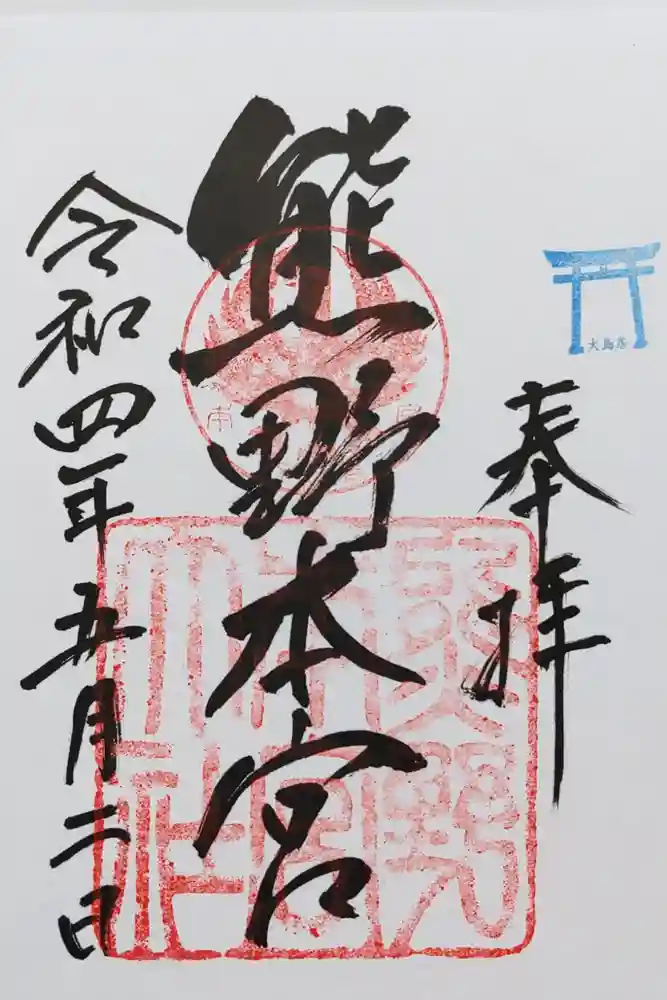 大鳥居
奉拝
熊野本宮
熊野本宮大社
令和四年五月二日